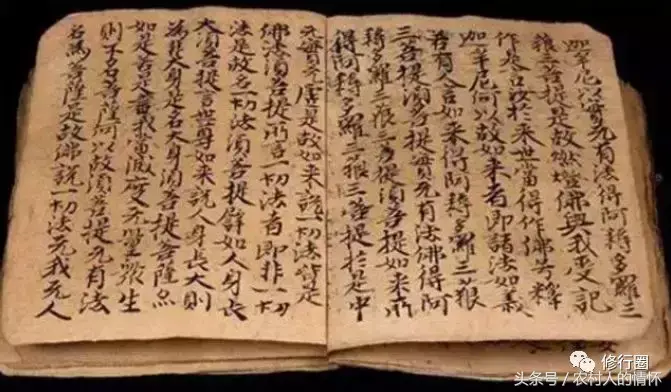 迦牟尼以實无有法得阿耨多羅三
藐三菩提是故燃燈佛與我受記
作是言汝於來世當得作佛号釋
迦牟尼何以故如来者即諸法如義
若有人言如来得阿耨多羅三藐
三菩提須菩提實无有法佛得阿
耨多羅三藐三菩提須菩提如来所
得阿耨多羅三藐三菩提於是中
无實无虛是故如来說一切法皆是
佛法須菩提所言一切法者即非一切
法是故名一切法須菩提譬如人身長
大須菩提言世尊如来說人身長大則
為非大身是名大身須菩提菩薩亦
如是若是言我當滅度无量眾生
則不名菩薩何以故須菩提无有法
名為菩薩是故佛說一切法无我无人
修行圈
头条号 / 农村人的情怀